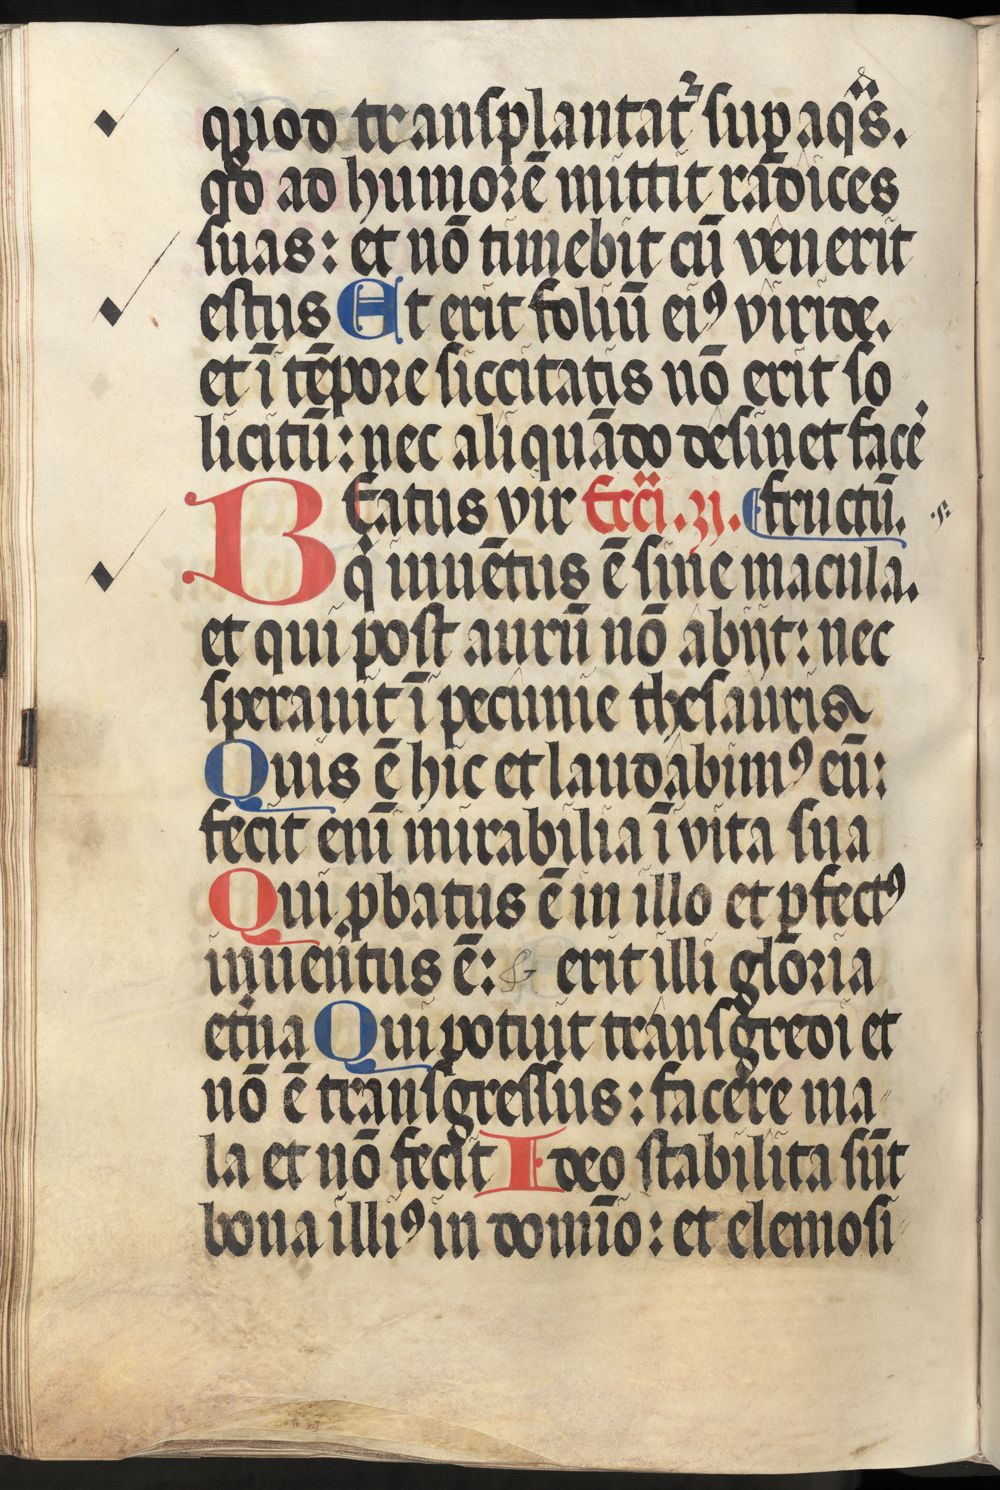 quod transplantat᷑ sup aq̃s.
qđ ad humorē mittit radices
suas: et nō timebit cū venerit
estus Et erit foliū eiꝰ viride.
et ī tēpore siccitatis nō erit so
licitū: nec aliquādo desinet face᷑
Beatus vir Ecci. 31. fructū.
q̇ inuētus ē sine macula.
et qui post aurū nō abijt: nec
sperauit ī pecunie thesauris
Quis ē hic et laudabimꝰ eū:
fecit enī mirabilia ī vita sua
Qui ꝓbatus ē in illo et ꝑfectꝰ
inuentus ē: & erit illi gloria
et᷑na Qui potuit transgredi et
nō ē transgressus: facere ma
la et nō fecit Ideo stabilita sūt
bona illiꝰ in domīo: et elemosi